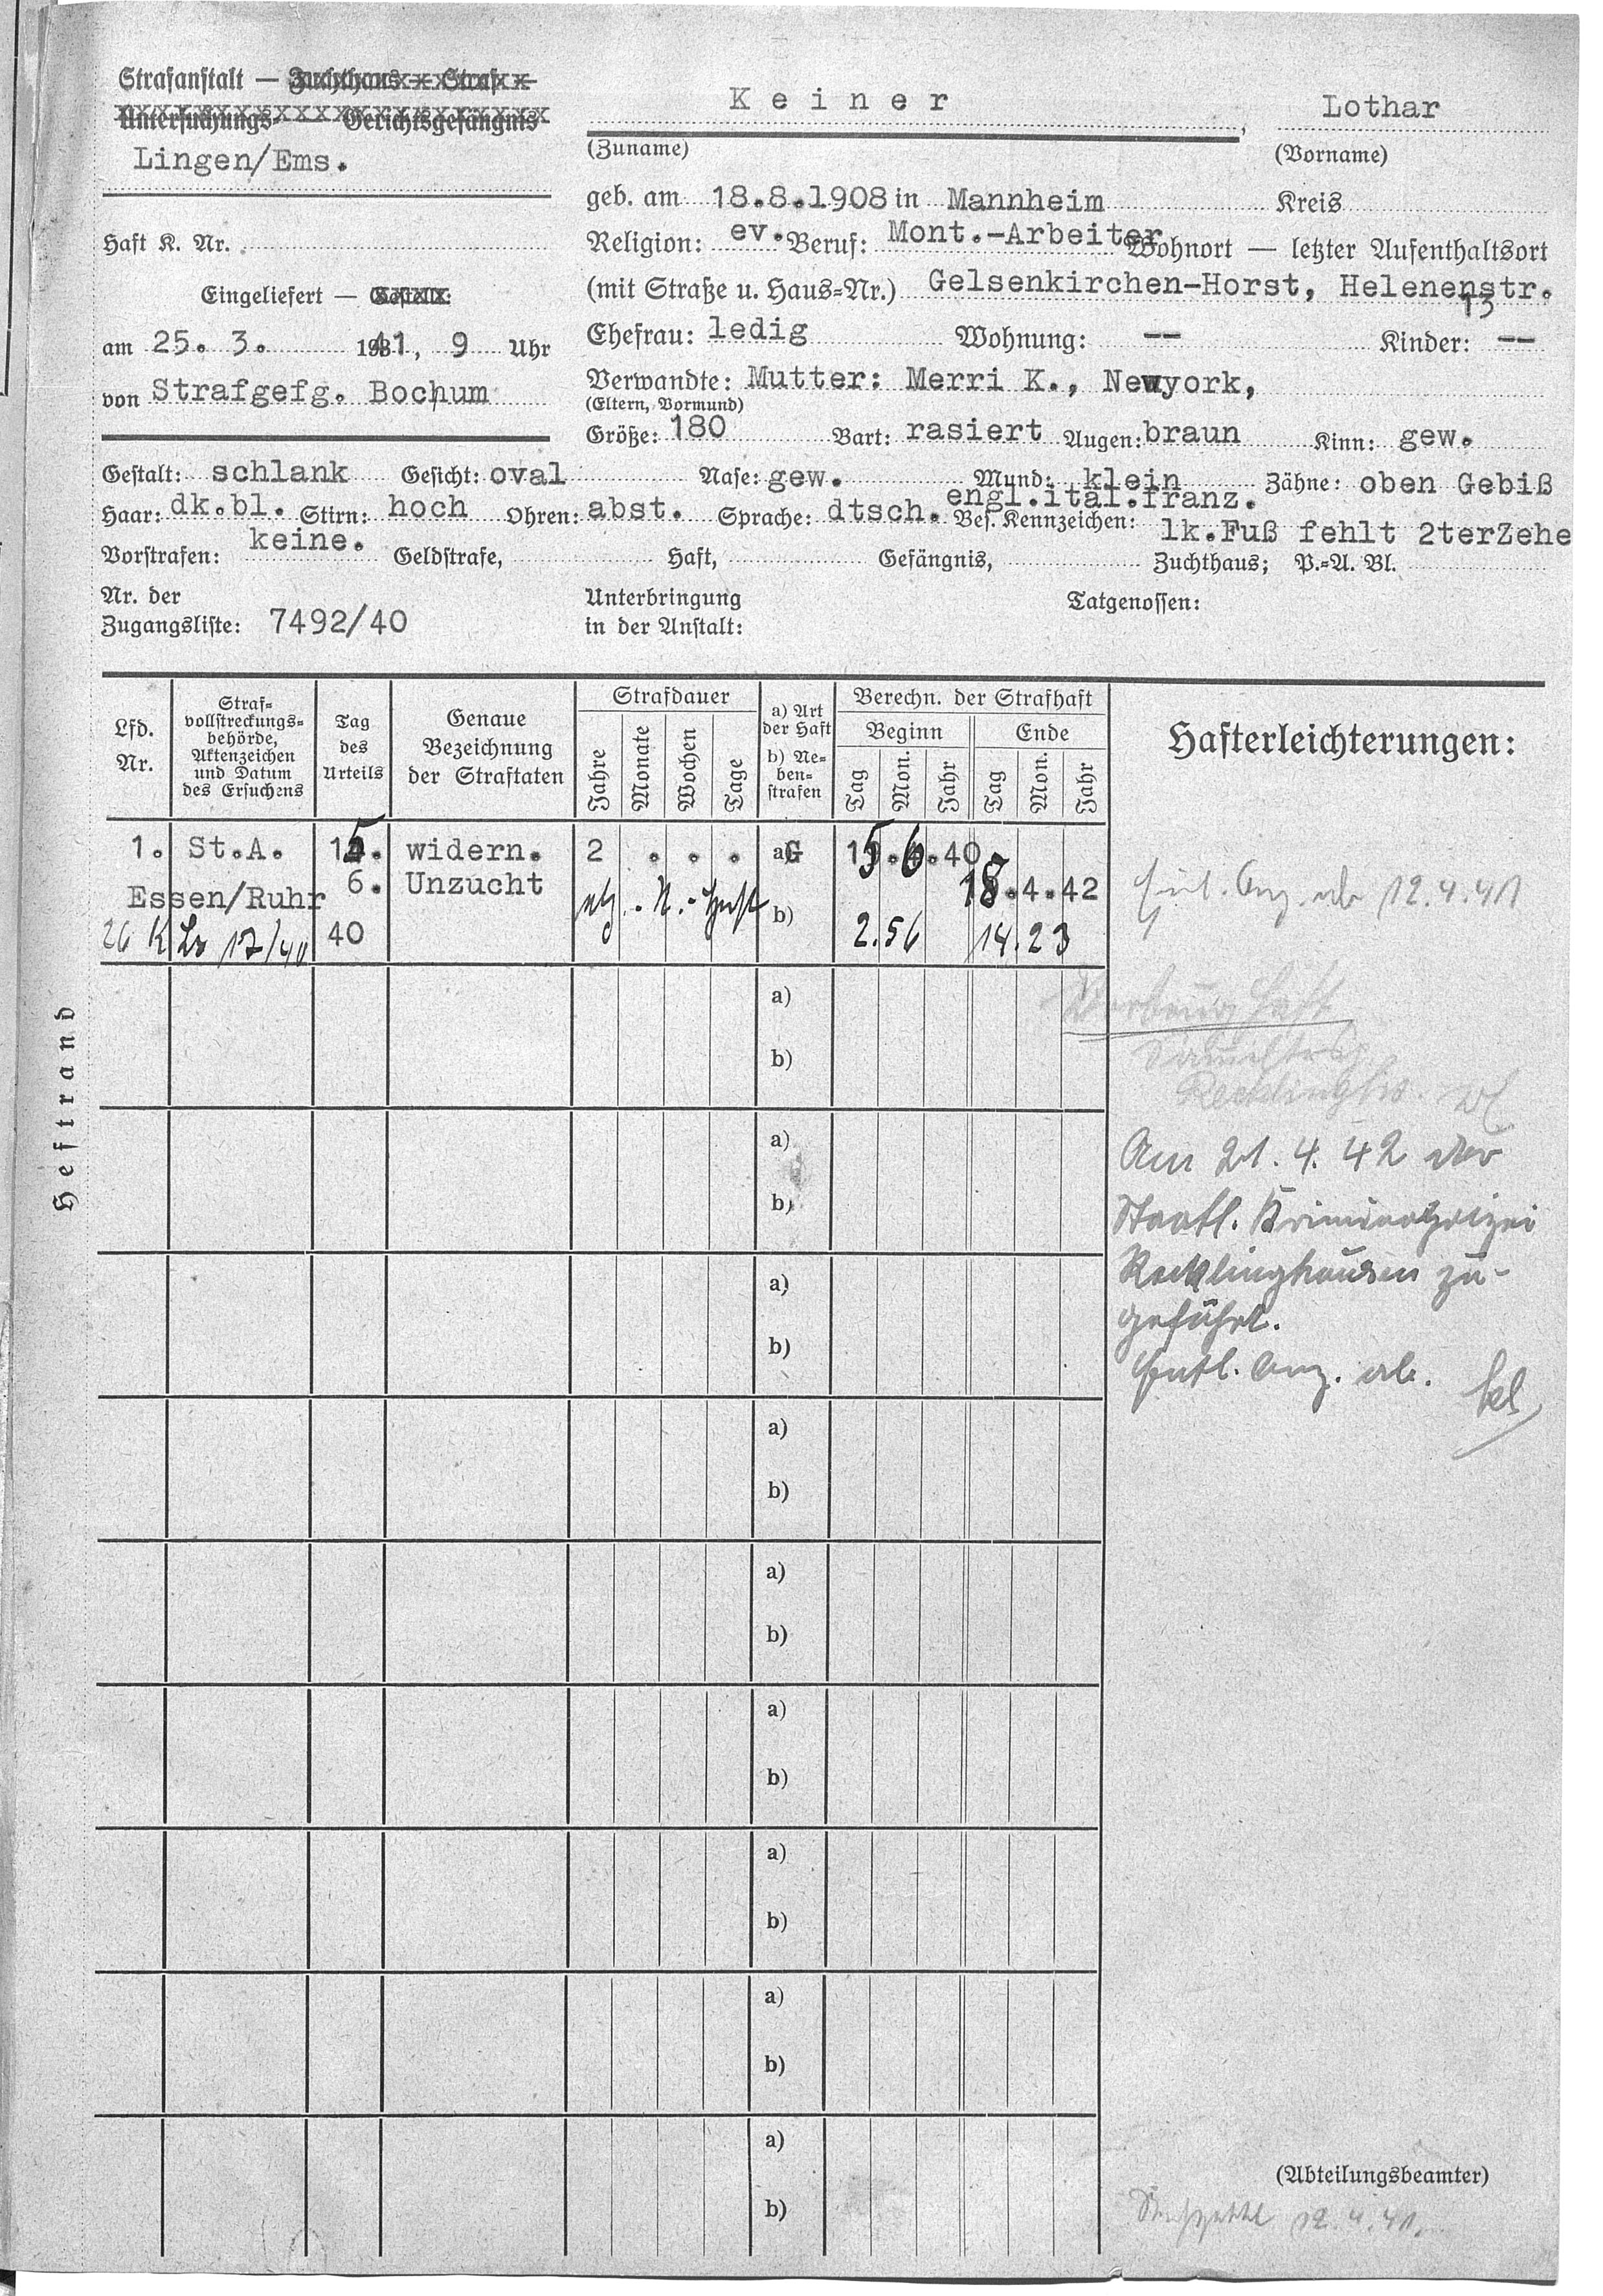 Strafanstalt — Zuchthaus — Straf-
Untersuchungs- Gerichtsgefängnis
Lingen/Ems.
Keiner, Lothar
(Zuname) (Vorname)
geb. am 18.8.1908 in Mannheim Kreis
Haft K. Nr.
Religion: ev. Beruf: Mont.-Arbeiter Wohnort — letzter Aufenthaltsort
(mit Straße u. Haus-Nr.) Gelsenkirchen-Horst, Helenenstr.
13
Eingeliefert —
am 25. 3. 1941, 9 Uhr
von Strafgefg. Bochum
Ehefrau: ledig Wohnung: -- Kinder: --
Verwandte: Mutter: Merri K., Newyork,
(Eltern, Vormund)
Größe: 180 Bart: rasiert Augen: braun Kinn: gew.
Gestalt: schlank Gesicht: oval Nase: gew. Mund: klein Zähne: oben Gebiß
engl.ital.franz.
Haar: dk.bl. Stirn: hoch Ohren: abst. Sprache: dtsch. Bes. Kennzeichen: lk.Fuß fehlt 2terZehe
Vorstrafen: keine. Geldstrafe, Haft, Gefängnis, Zuchthaus; P.-A. Bl.
Nr. der
Zugangsliste: 7492/40
Unterbringung
in der Anstalt:
Tatgenossen:
Lfd.
Nr.
Straf-
vollstreckungs-
behörde,
Aktenzeichen
und Datum
des Ersuchens
Tag
des
Urteils
Genaue
Bezeichnung
der Straftaten
Strafdauer
Jahre Monate Wochen Tage
a) Art
der Haft
b) Ne-
ben-
strafen
Berechn. der Strafhaft
Beginn Ende
Tag Mon. Jahr Tag Mon. Jahr
Hafterleichterungen:
1. St.A. 15. widern. 2 . . . a) G 15.6.40
Essen/Ruhr 6. Unzucht 18.4.42
26 K Ls 17/40 40 b) 2.56 14.23
12.4.41
a)
b)
Recklinghs.
a)
b)
Am 21.4.42 der
Staatl. Kriminalpolizei
Recklinghausen zu-
geführt.
Entl. Anz. ab.
a)
b)
a)
b)
a)
b)
a)
b)
a)
b)
a)
b)
a)
b)
Heftrand
(Abteilungsbeamter)
12.4.41.